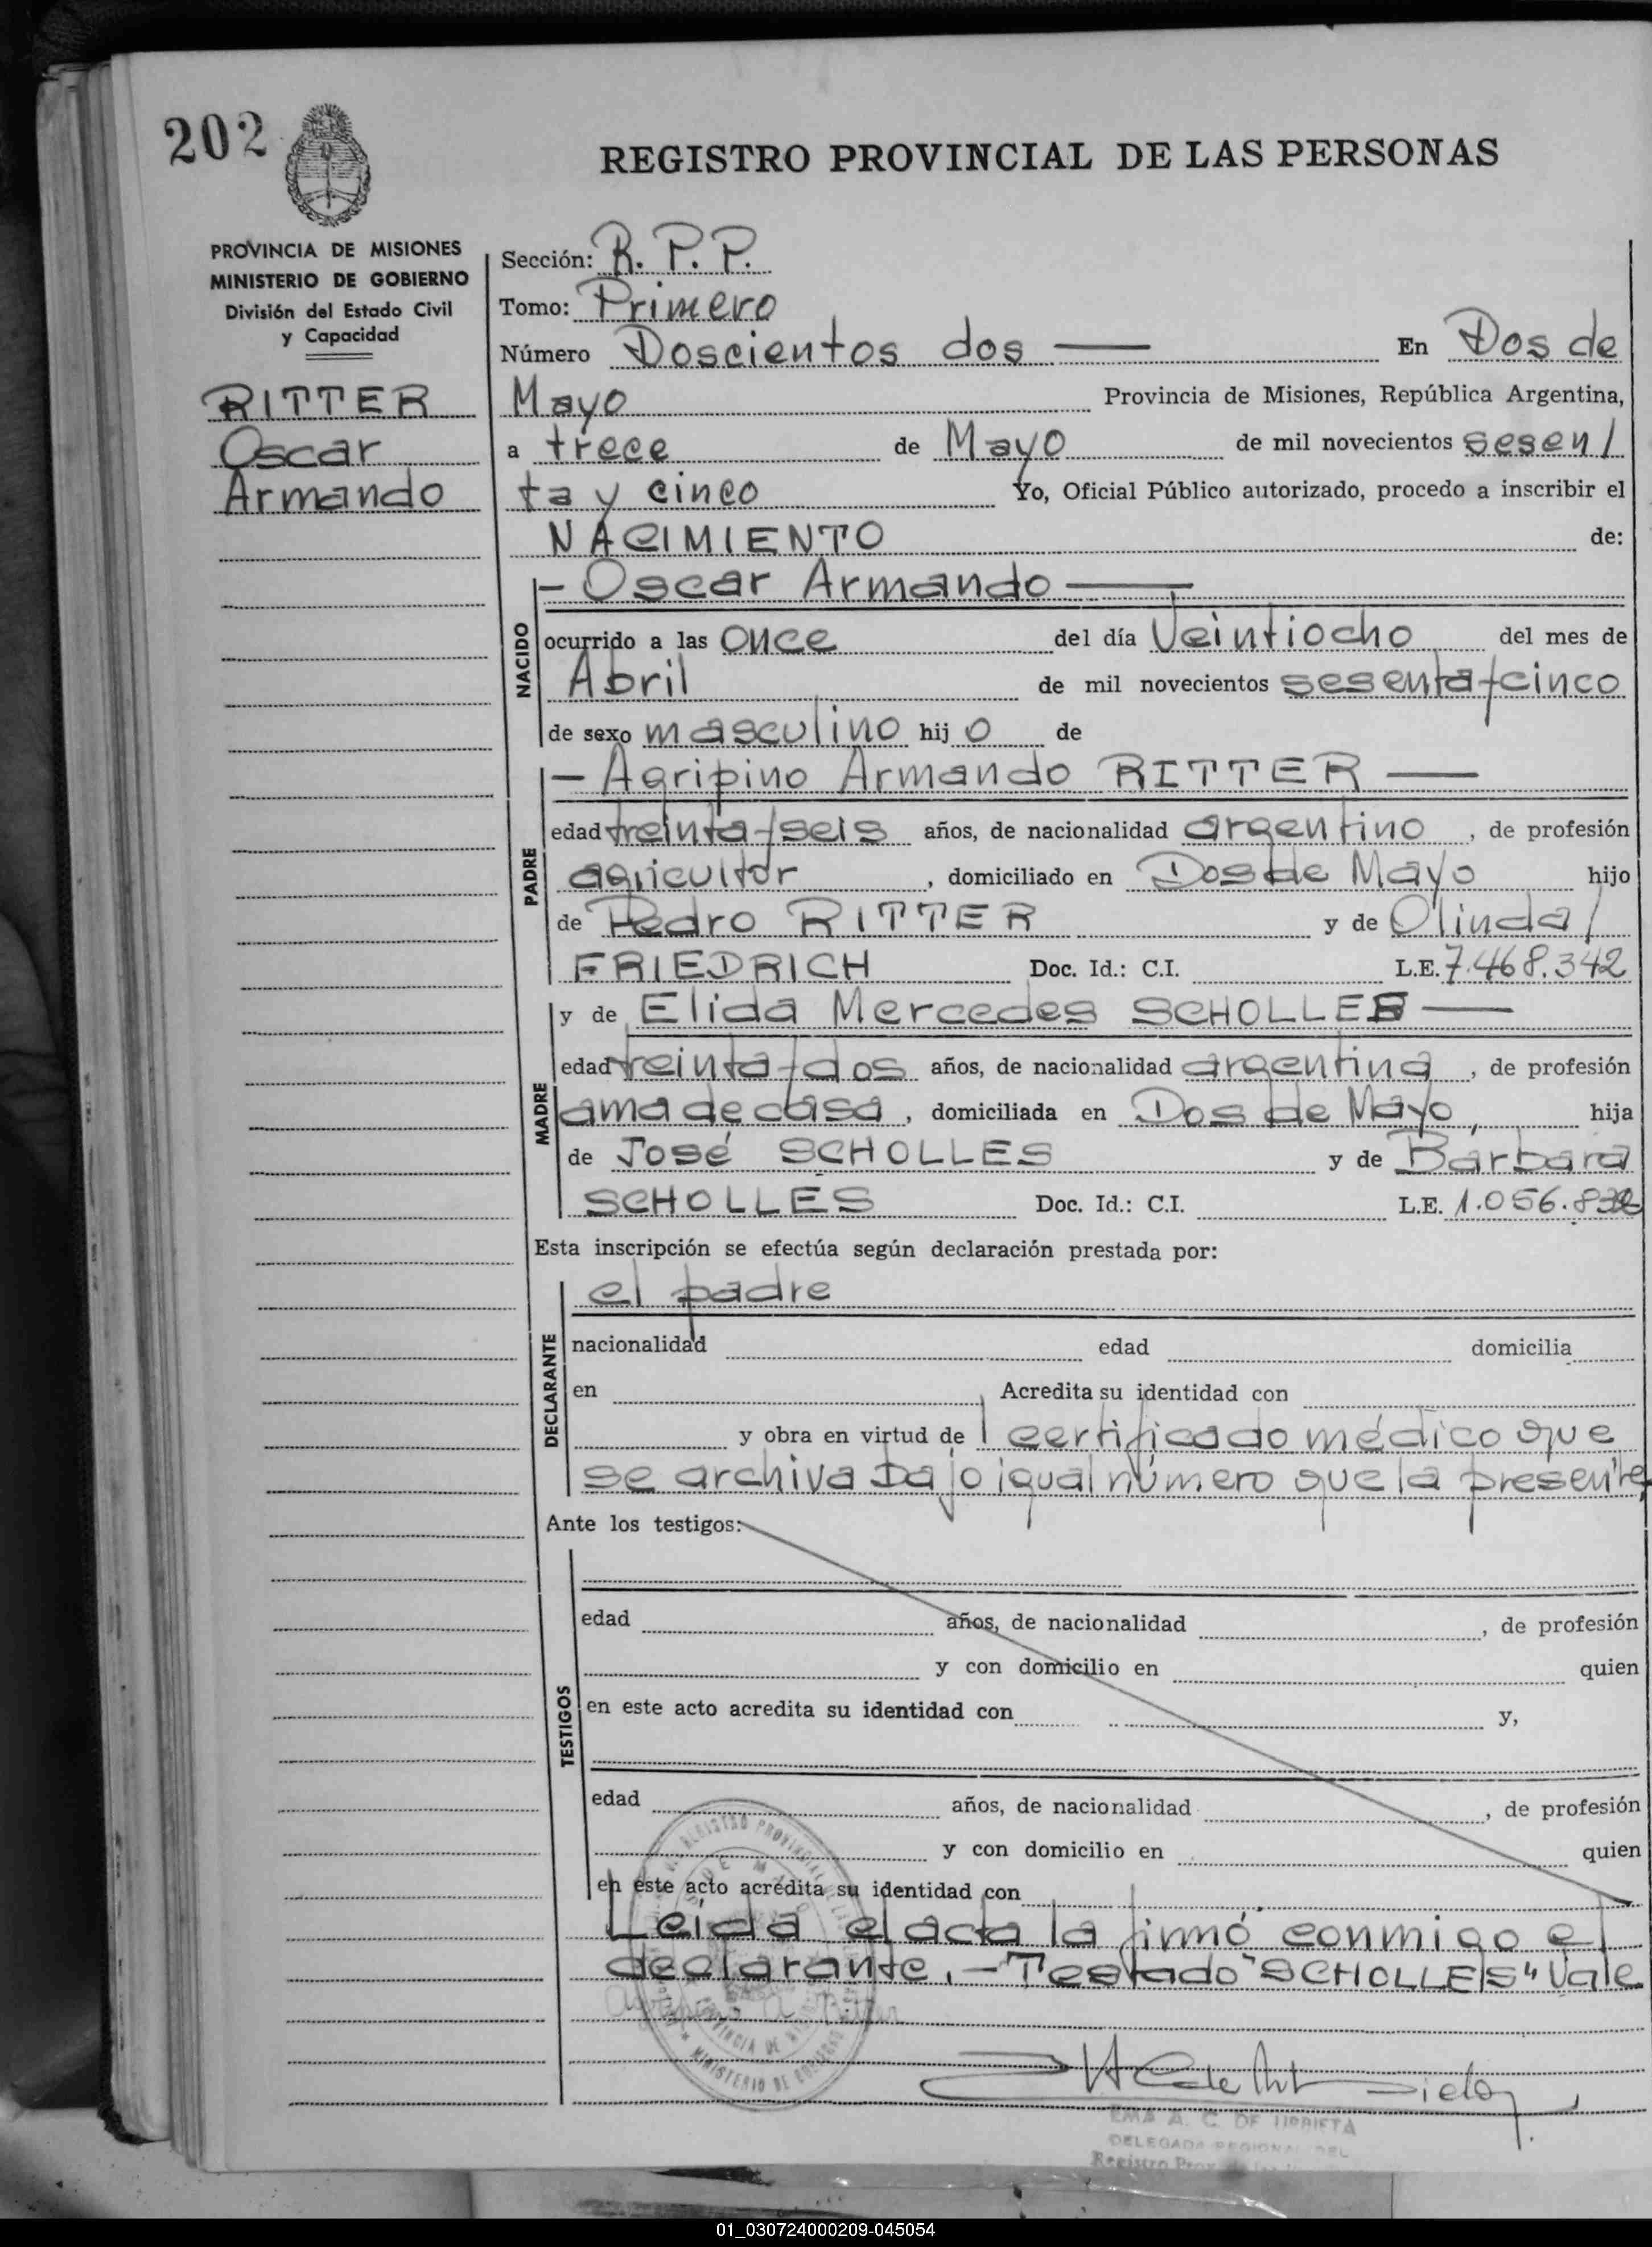 202
REGISTRO PROVINCIAL DE LAS PERSONAS
PROVINCIA DE MISIONES
MINISTERIO DE GOBIERNO
División del Estado Civil
y Capacidad
RITTER
Oscar
Armando
Sección: R. P. P.
Tomo: Primero
Número Doscientos dos — En Dos de
Mayo Provincia de Misiones, República Argentina,
a trece de Mayo de mil novecientos sesen/
ta y cinco Yo, Oficial Público autorizado, procedo a inscribir el
NACIMIENTO de:
NACIDO
— Oscar Armando —
ocurrido a las once del día Veintiocho del mes de
Abril de mil novecientos sesenta y cinco
de sexo masculino hij o de
PADRE
— Agripino Armando RITTER —
edad treinta y seis años, de nacionalidad argentino, de profesión
agricultor, domiciliado en Dos de Mayo hijo
de Pedro RITTER y de Olinda/
FRIEDRICH Doc. Id.: C.I. L.E. 7.468.342
MADRE
y de Elida Mercedes SCHOLLES —
edad treinta y dos años, de nacionalidad argentina, de profesión
ama de casa, domiciliada en Dos de Mayo, hija
de José SCHOLLES y de Bárbara
SCHOLLES Doc. Id.: C.I. L.E.
Esta inscripción se efectúa según declaración prestada por:
DECLARANTE
el padre
nacionalidad edad domicilia
en Acredita su identidad con
y obra en virtud de certificado médico que
se archiva bajo igual número que la presente,
Ante los testigos:
TESTIGOS
edad años, de nacionalidad , de profesión
y con domicilio en quien
en este acto acredita su identidad con y,
edad años, de nacionalidad , de profesión
y con domicilio en quien
en este acto acredita su identidad con
Leída el acta la firmó conmigo el
declarante. — Testado "SCHOLLES" Vale
EMA A. C. DE URRIETA
DELEGADA REGIONAL DEL
01_030724000209-045054